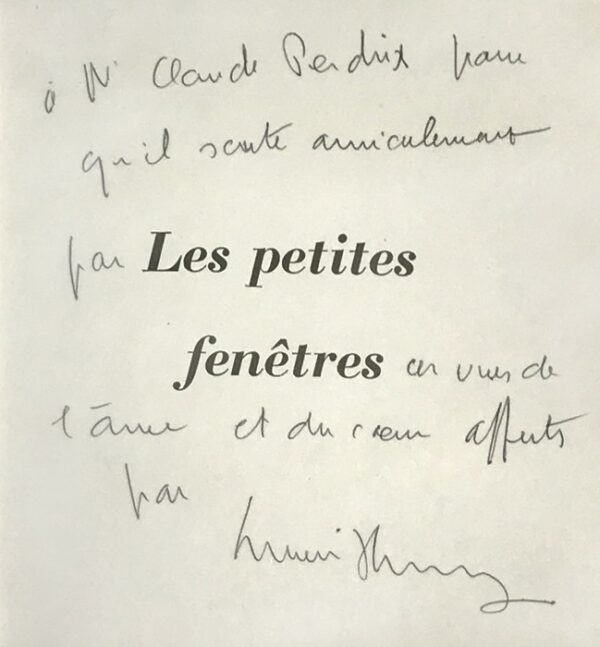 à Mr Claude Perdrix pour
qu'il saute amicalement
par Les petites
fenêtres vues de
l'âme et du cœur offerts
par